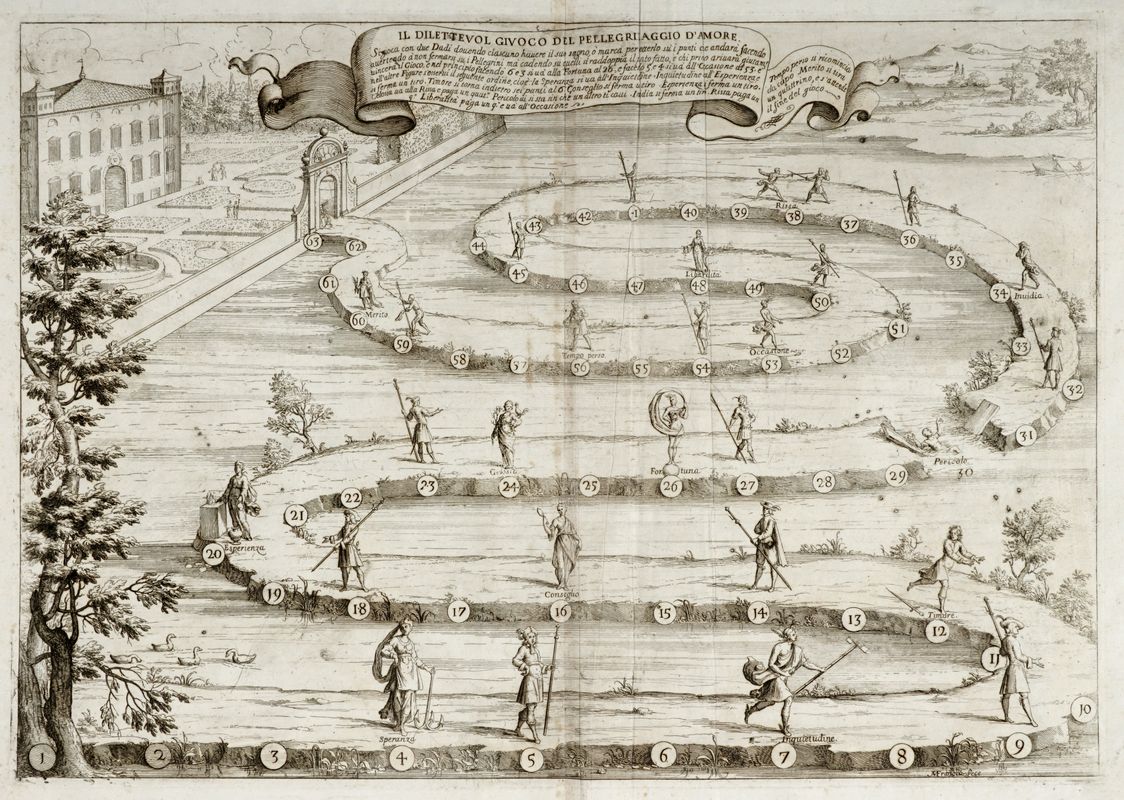 IL DILETTEVOL GIVOCO DEL PELLEGRINAGGIO D'AMORE.
Si gioca con due Dadi douendo ciascuno hauere il suo segno, ò marca per meterlo su i punti che andarà facendo
auertendo a non fermarsi su i Pellegrini ma cadendo su quelli si raddoppia il tiro fatto, e chi primo arriuarà giustam.
uincerà il Gioco, e nel principio facendo 6 e 3 si uà alla Fortuna al 26, e facendo 5 e 4 si uà all'Occasione al 53 e
nell'altre Figure s'oserui il seguente ordine, cioè la Speranza si ua all'Inquietudine. Inquietudine all'Esperienza e
si ferma un tiro. Timore si torna indietro sei punti al 6 Conseglio si ferma un tiro. Esperienza si ferma un tiro.
uà alla Rissa e paga un Pericolo ui si sta sin che un altro ti caui. Inuidia si ferma un tiro. Rissa paga un
Liberalità paga un e uà all'Occasione
Tempo perso si ricomincia
da capo Merito si tira
un quattrino, e s'attende
il fine del gioco.
63
62
61
60
Merito
50
58
57
56
Tempo perso
55
54
53
Occasione
52
51
50
49
48
Liberalita
47
46
45
44
43
42
41
40
39
38
Rissa
37
36
35
34
Inuidia
33
32
31
Pericolo
30
29
28
27
26
Fortuna
25
24
23
22
21
20
Esperienza
19
18
17
16
Conseglio
15
14
13
12
Timore
11
10
Speranza
Inquietudine
1
2
3
4
5
6
7
8
9